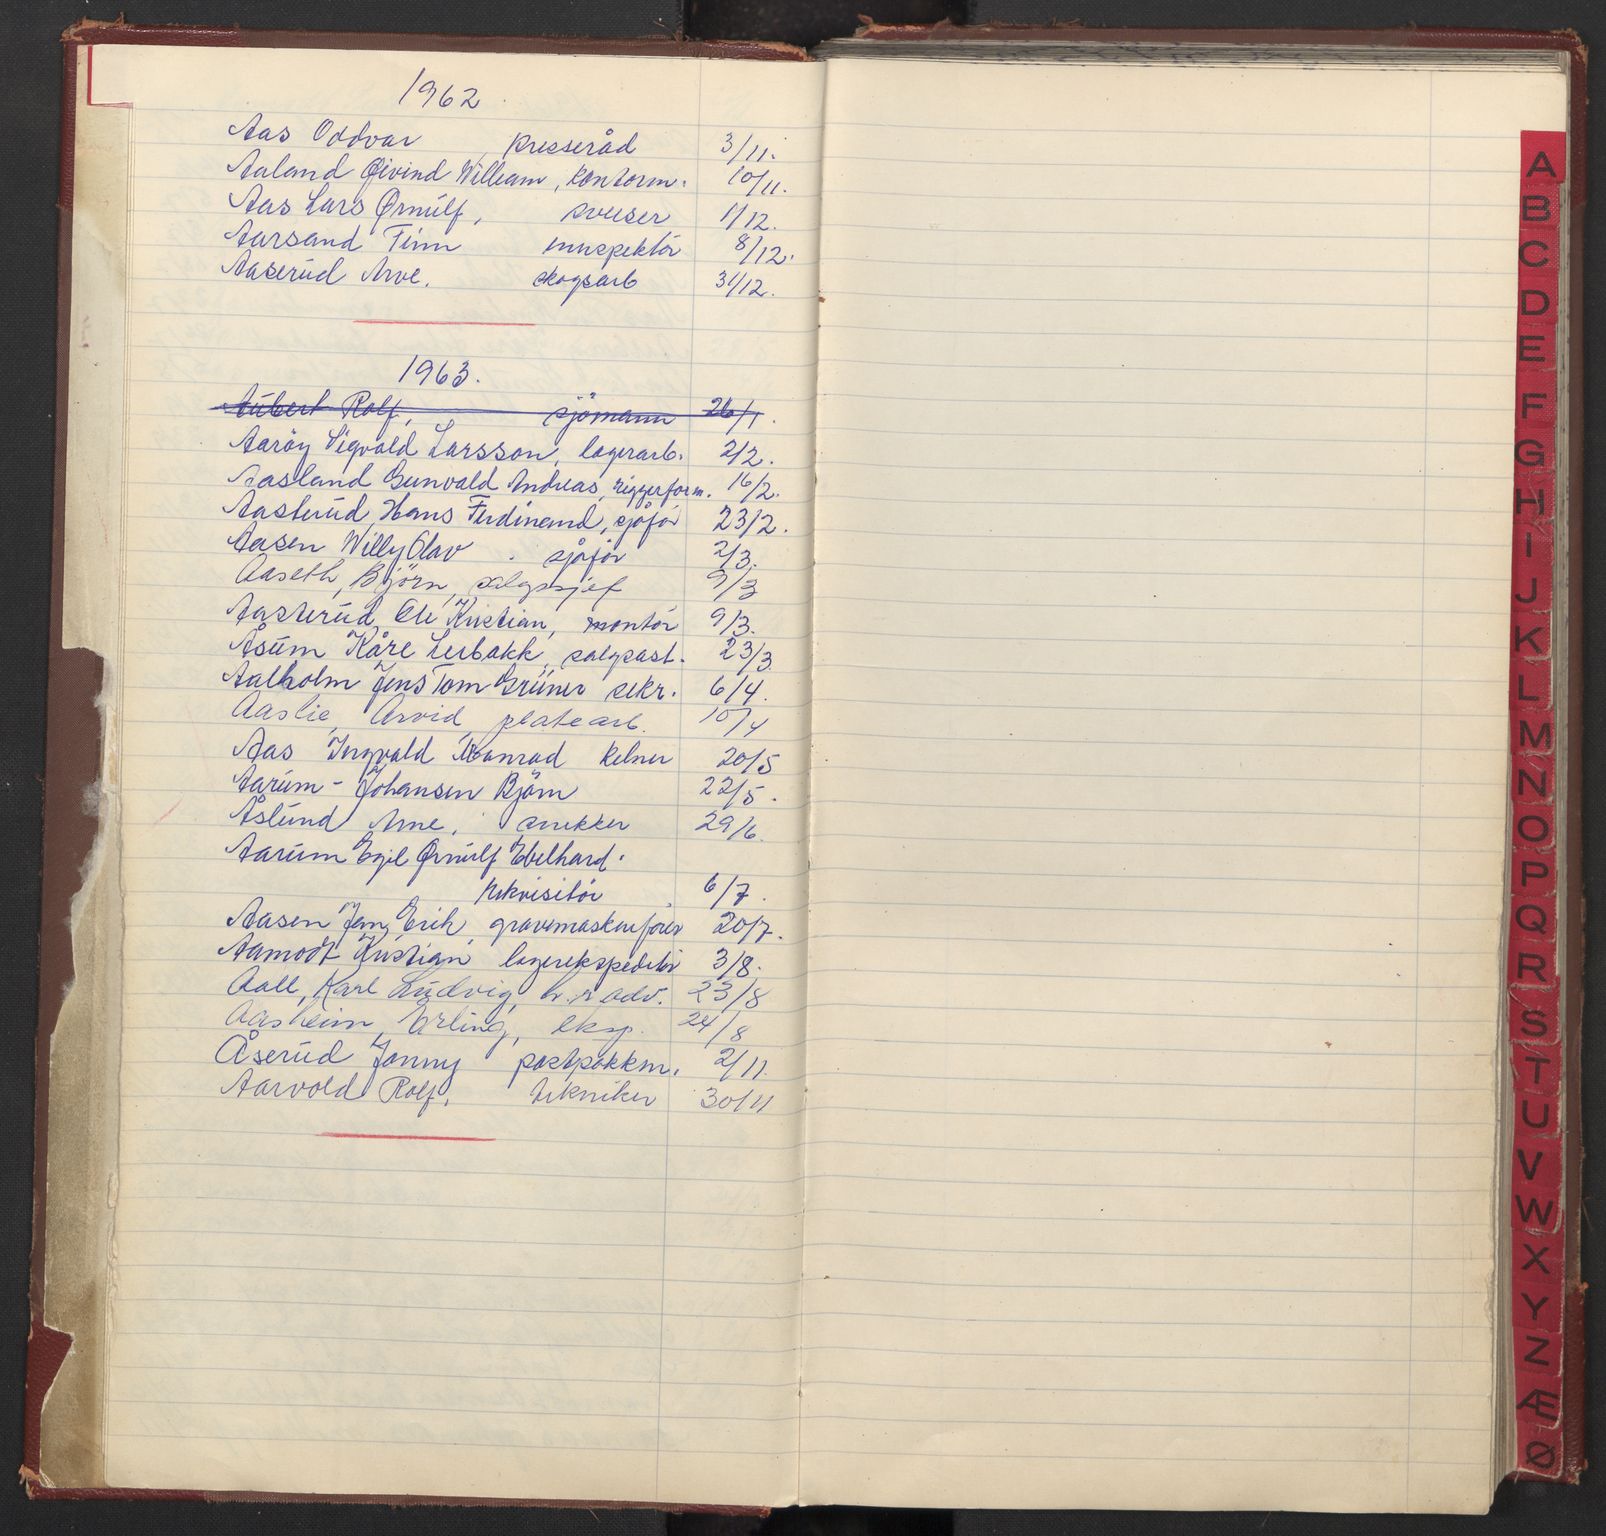 1962
Aas Oddvar, presseråd 3/11.
Aaland Øivind William, kontorm. 10/11.
Aas Lars Ørnulf, sveiser 1/12.
Aarsand Finn innspektör 8/12.
Aaserud Arve. skogsarb 31/12.
1963.
Aubert Rolf, sjömann 26/1.
Aaröy Sigvald Larsson, lagerarb. 2/2.
Aasland Gunvald Andreas, riggerform. 16/2.
Aasterud, Hans Ferdinand, sjåför 23/2.
Aasen Willy Olav. sjåför 2/3.
Aaseth, Björn, salgssjef 9/3
Aasterud, Ole Kristian, montör 9/3.
Åsum Kåre Lerbakk, salgsast. 23/3
Aalholm Jens Tom Grüner sekr. 6/4.
Aaslie, Arvid, platearb. 10/4
Aas Ingvald Konrad kelner 20/5
Aarum-Johansen Björn 22/5.
Åslund Arne, snekker 29/6.
Aarum Egil Ørnulf Edelhard.
rekvisitör 6/7.
Aasen Jan Erik, gravemaskinförer 20/7.
Aamodt Kristian lagerekspeditör 3/8.
Aall, Karl Ludvig, h.r.adv. 23/8
Aasheim, Erling, eksp. 24/8
Åserud Jonny postpakkm. 2/11
Aarvold Rolf, tekniker 30/11
A
B
C
D
E
F
G
H
I
J
K
L
M
N
O
P
Q
R
S
T
U
V
W
X
Y
Z
Æ
Ø